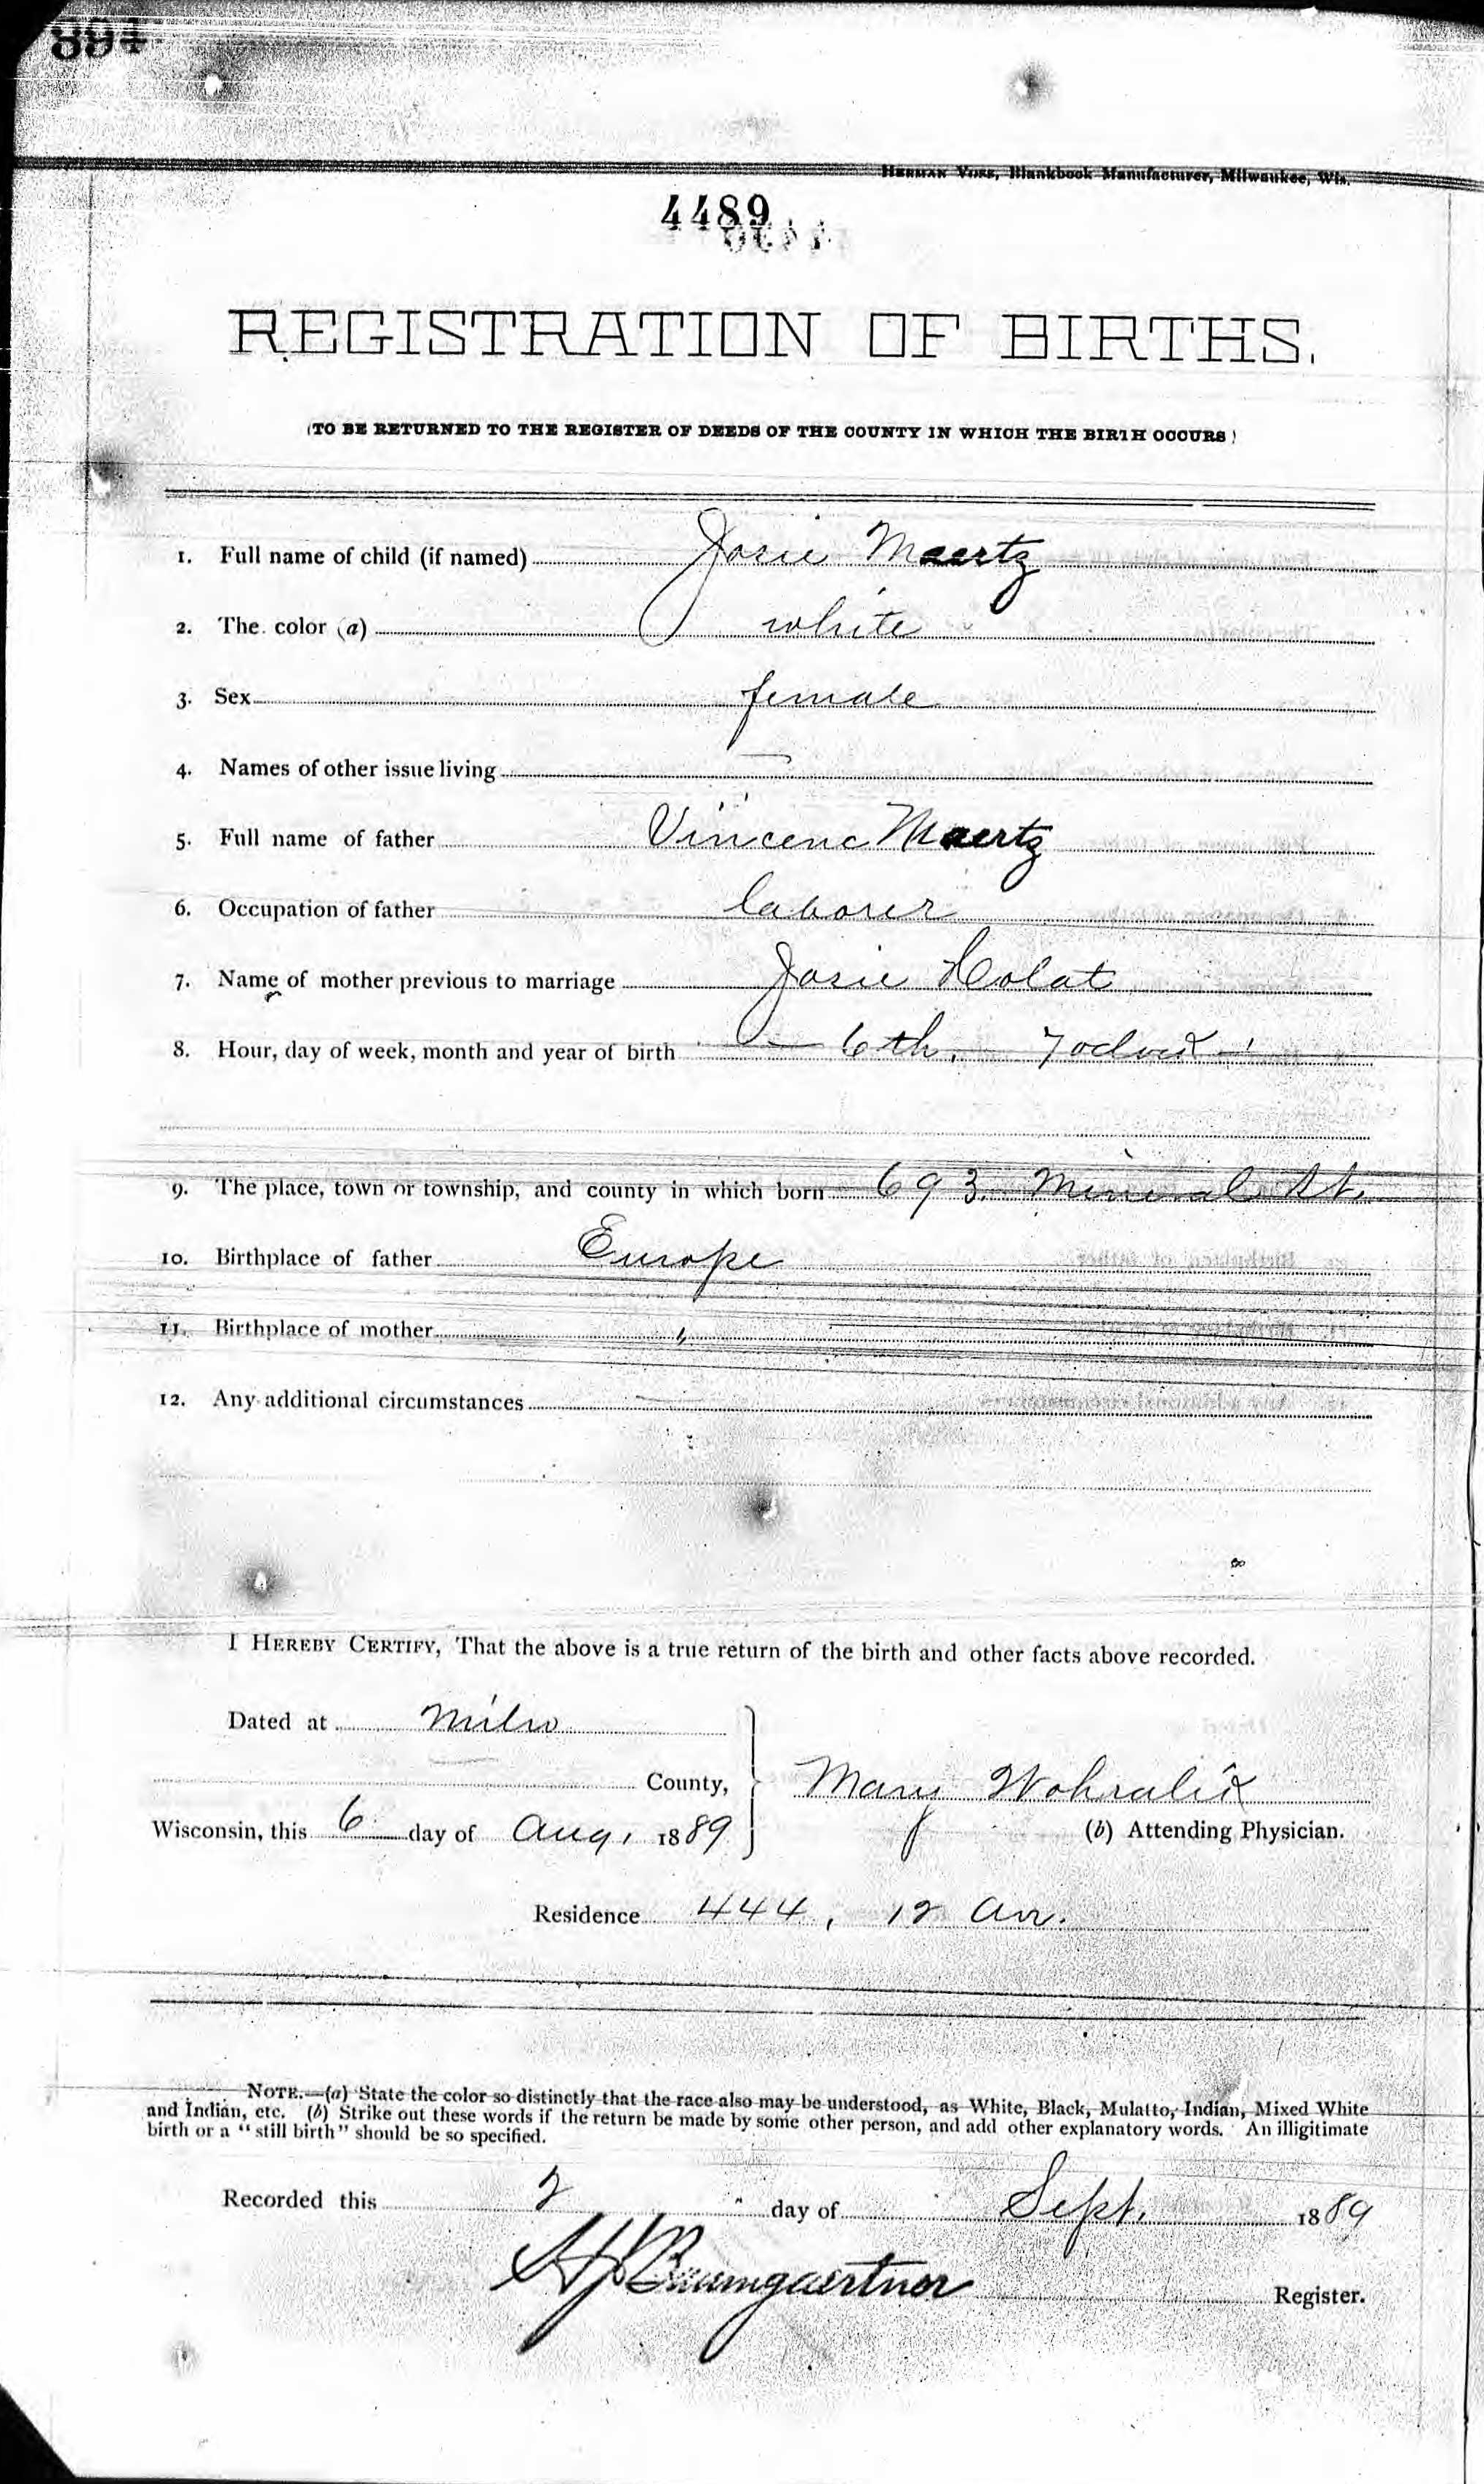 894
HERMAN VOSS, Blankbook Manufacturer, Milwaukee, Wis.
4489
REGISTRATION OF BIRTHS.
(TO BE RETURNED TO THE REGISTER OF DEEDS OF THE COUNTY IN WHICH THE BIRTH OCCURS)
1. Full name of child (if named) Josie Maertz
2. The color (a) white
3. Sex female
4. Names of other issue living —
5. Full name of father Vincenc Maertz
6. Occupation of father laborer
7. Name of mother previous to marriage Josie Holat
8. Hour, day of week, month and year of birth — 6th, 7 oclock
9. The place, town or township, and county in which born 693 Mineral St.
10. Birthplace of father Europe
11. Birthplace of mother "
12. Any additional circumstances —
I HEREBY CERTIFY, That the above is a true return of the birth and other facts above recorded.
Dated at Milw
County,
Mary Wohralik
Wisconsin, this 6 day of Aug, 1889
(b) Attending Physician.
Residence 444, 12 Av.
NOTE.—(a) State the color so distinctly that the race also may be understood, as White, Black, Mulatto, Indian, Mixed White
and Indian, etc. (b) Strike out these words if the return be made by some other person, and add other explanatory words. An illigitimate
birth or a "still birth" should be so specified.
Recorded this 2 day of Sept. 1889
Baumgaertner Register.